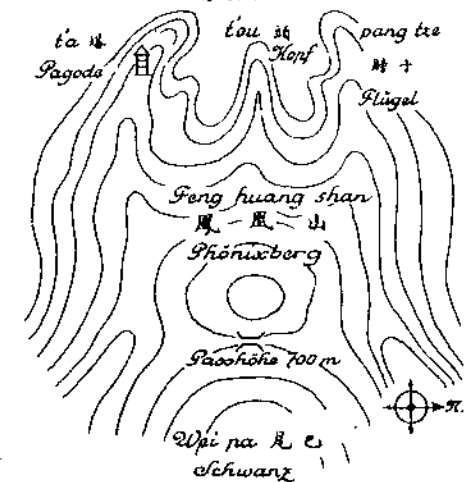 t'a 塔
Pagode
t'ou 頭
Kopf
pang tze
Flügel
Feng huang shan
鳳 凰 山
Phönixberg
Passhöhe 700 m
N.
Wei pa 尾 巴
Schwanz